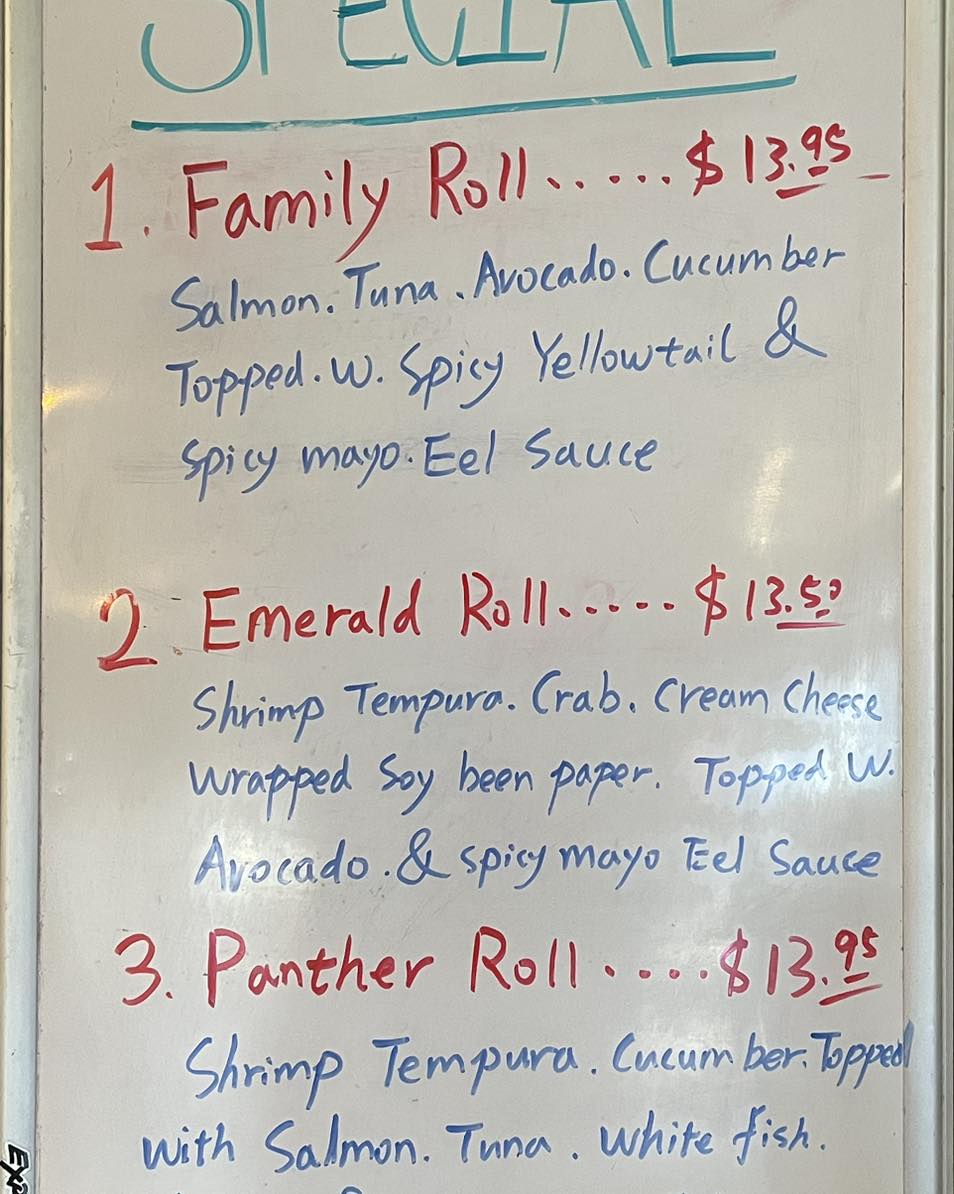 SPECIAL
1. Family Roll ..... $13.95
Salmon. Tuna. Avocado. Cucumber
Topped. W. Spicy Yellowtail &
Spicy mayo. Eel Sauce
2. Emerald Roll ..... $13.50
Shrimp Tempura. Crab. Cream Cheese
Wrapped Soy been paper. Topped W.
Avocado. & spicy mayo Eel Sauce
3. Panther Roll ..... $13.95
Shrimp Tempura. Cucumber. Topped
with Salmon. Tuna. White fish.